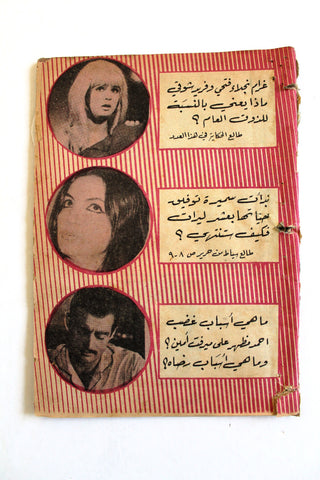 غرام نجلاء فتحي وفريد شوقي
ماذا يعني بالنسبة
للذوق العام ؟
طالع الحكاية في هذا العدد
بدأت سميرة توفيق
حياتها بعشر ليرات
فكيف ستنتهي ؟
طالع بساط من حرير ص ٨-٩
ما هي أسباب غضب
احمد مظهر على ميرفت أمين ؟
وما هي أسباب رضاه ؟